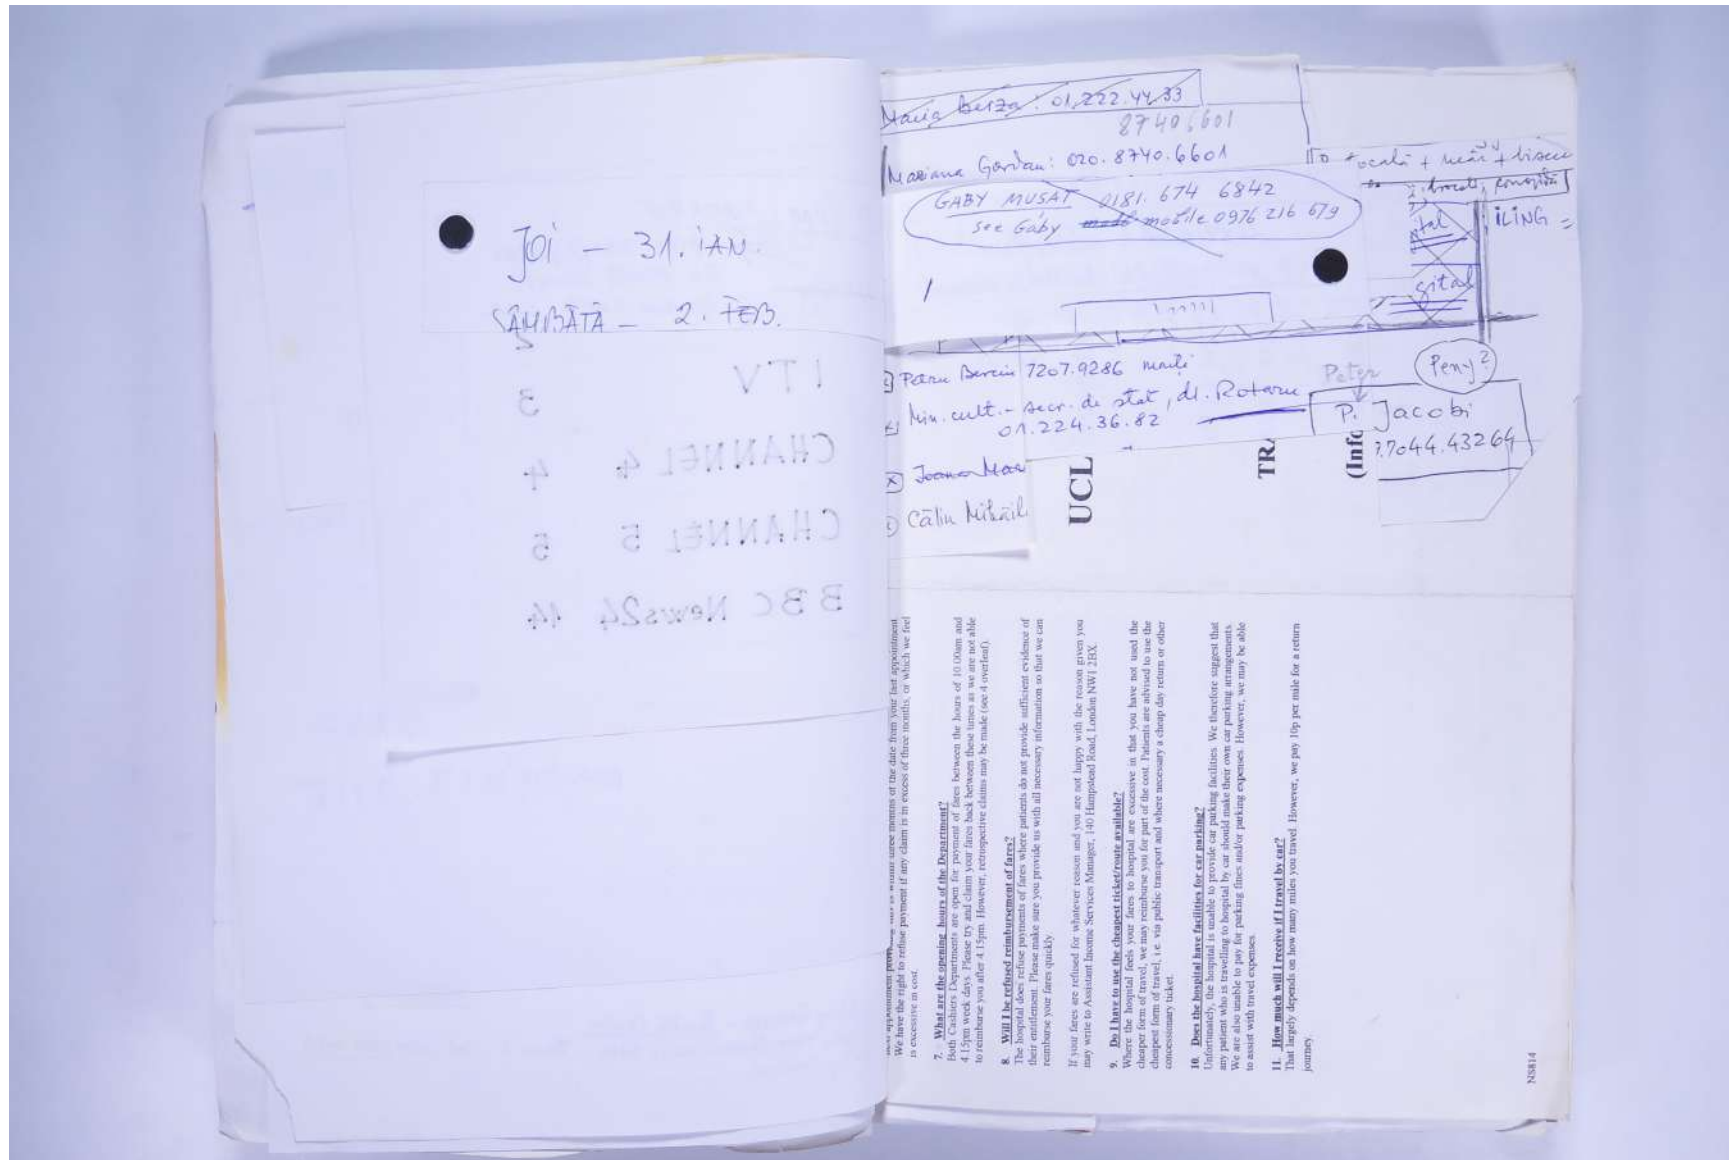 JOI – 31. IAN.
SÂMBĂTĂ – 2. FEB.
ITV 3
CHANNEL 4 4
CHANNEL 5 5
BBC News24 14
Maria Berza: 01.222.44.33
87406601
Mariana Gordan: 020.8740.6601
GABY MUSAT 0181. 674 6842
see Gaby mobile 0976 216 679
+ +
ILING =
gital
Petru Berciu 7207.9286
Min. cult. – secr. de stat, dl. Rotaru
01.224.36.82
Ioana
Călin Mihăil
Peter
Peny?
P. Jacobi
7044.43264
UCL
TRA
(Info
We have the right to refuse payment if any claim is in excess of three months, or which we feel
is excessive in cost.
7. What are the opening hours of the Department?
Both Cashiers Departments are open for payment of fares between the hours of 10.00am and
4.15pm week days. Please try and claim your fares back between these times as we are not able
to reimburse you after 4.15pm. However, retrospective claims may be made (see 4 overleaf).
8. Will I be refused reimbursement of fares?
The hospital does refuse payments of fares where patients do not provide sufficient evidence of
their entitlement. Please make sure you provide us with all necessary information so that we can
reimburse your fares quickly.
If your fares are refused for whatever reason and you are not happy with the reason given you
may write to Assistant Income Services Manager, 140 Hampstead Road, London NW1 2BX.
9. Do I have to use the cheapest ticket/route available?
Where the hospital feels your fares to hospital are excessive in that you have not used the
cheaper form of travel, we may reimburse you for part of the cost. Patients are advised to use the
cheapest form of travel, i.e. via public transport and where necessary a cheap day return or other
concessionary ticket.
10. Does the hospital have facilities for car parking?
Unfortunately, the hospital is unable to provide car parking facilities. We therefore suggest that
any patient who is travelling to hospital by car should make their own car parking arrangements.
We are also unable to pay for parking fines and/or parking expenses. However, we may be able
to assist with travel expenses.
11. How much will I receive if I travel by car?
That largely depends on how many miles you travel. However, we pay 10p per mile for a return
journey.
NS814